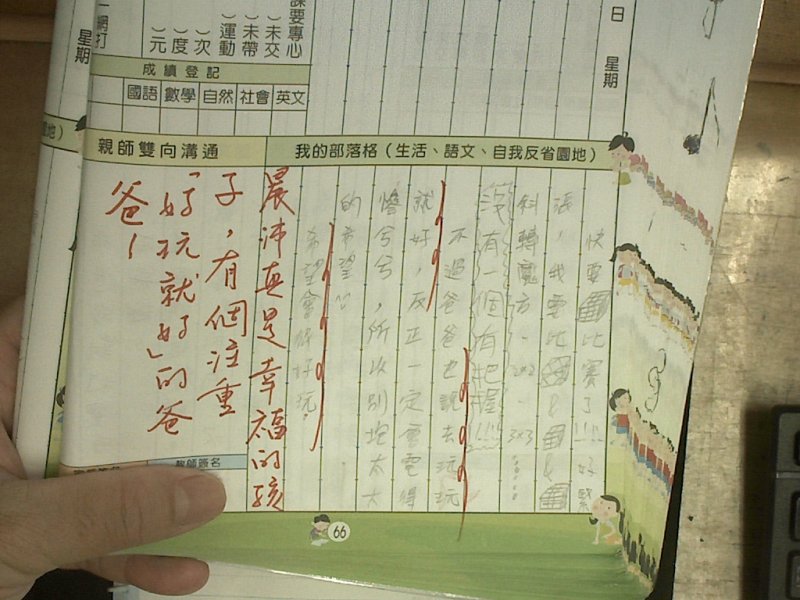 日
星期
星期
課要專心
)未交
)未帶
)運動
)次
)度
)元
成績登記
國語 數學 自然 社會 英文
親師雙向溝通
我的部落格(生活、語文、自我反省園地)
快要比賽了!!!!好緊
張,我要比&&
科轉魔方、2x2、3x3……
沒有一個有把握!!!!
不過爸爸也說去玩玩
就好,反正一定會電得
慘兮兮,所以別抱太大
的希望
希望會很好玩。
晨沛真是幸福的孩
子,有個注重
「好玩就好」的爸
爸!
教師簽名
66